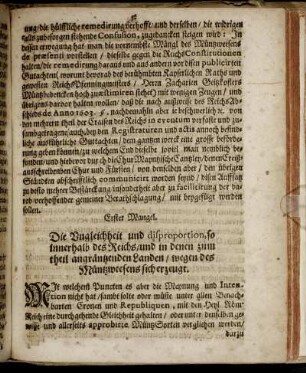 nung/die hülffliche remedirung verhofft/und derselben/die widrigen
falls zubesorgen stehende Confusion, zugedancken steigen wird: In
dessen erwegung hat man die vornembste Mängel des Müntzwesens
de præsenti vorstellen/dieselbe gegen die ReichsConstitutionen
halten/die remedirung daraus und aus andern offtmals publicirten
Gutachten/worunt bevorab des berühmten Käyserlichen Raths und
gewesten ReichsPfenningmeisters/Herrn Zacharien Geitzkoflers
Müntzbedencken
übrigens darvor halten wollen/daß die nach außweiß des ReichsAb-
schiedes de Anno 1603. §.
den mehrern theil der Craisen des Reichs in
Registraturen und actis annoch befindli-
che ausführliche Gutachten/dem gantzen werck eine grosse Beförde-
rung geben können/zu welchem Ende dieselbe soviel man nemblich be-
funden/und hiebevor durch die ChurMayntzische Cantzley/denen Creiß-
ausschreibenden Chur und Fürsten/von denselben aber/den übrigen
Ständen abschrifftlich communiciret worden seynd/diesem Auffsatz
zu desto mehrer Beglückung insonderheit aber zu facilitirung der dar-
ob verhoffender gemeiner Berathschlagung/mit beygefügt worden
seyen.
Erster Mangel.
Die Ungleichheit und disproportion, so
innerhalb des Reichs/und in denen zum
theil angräntzenden Landen/wegen des
Müntzwesens sich erzeugt.
MIt welchem Puncten es aber die Maynung und Inten-
tion nicht hat/samt solte oder müste unter allen Benach-
barten Cronen und Republiquen, mit dem Heyl. Röm.
Reich eine durchgehende Gleichheit gehalten/oder unter denselben ge-
wisse und allerseits approbirte MüntzSorten verglichen werden/
darzu